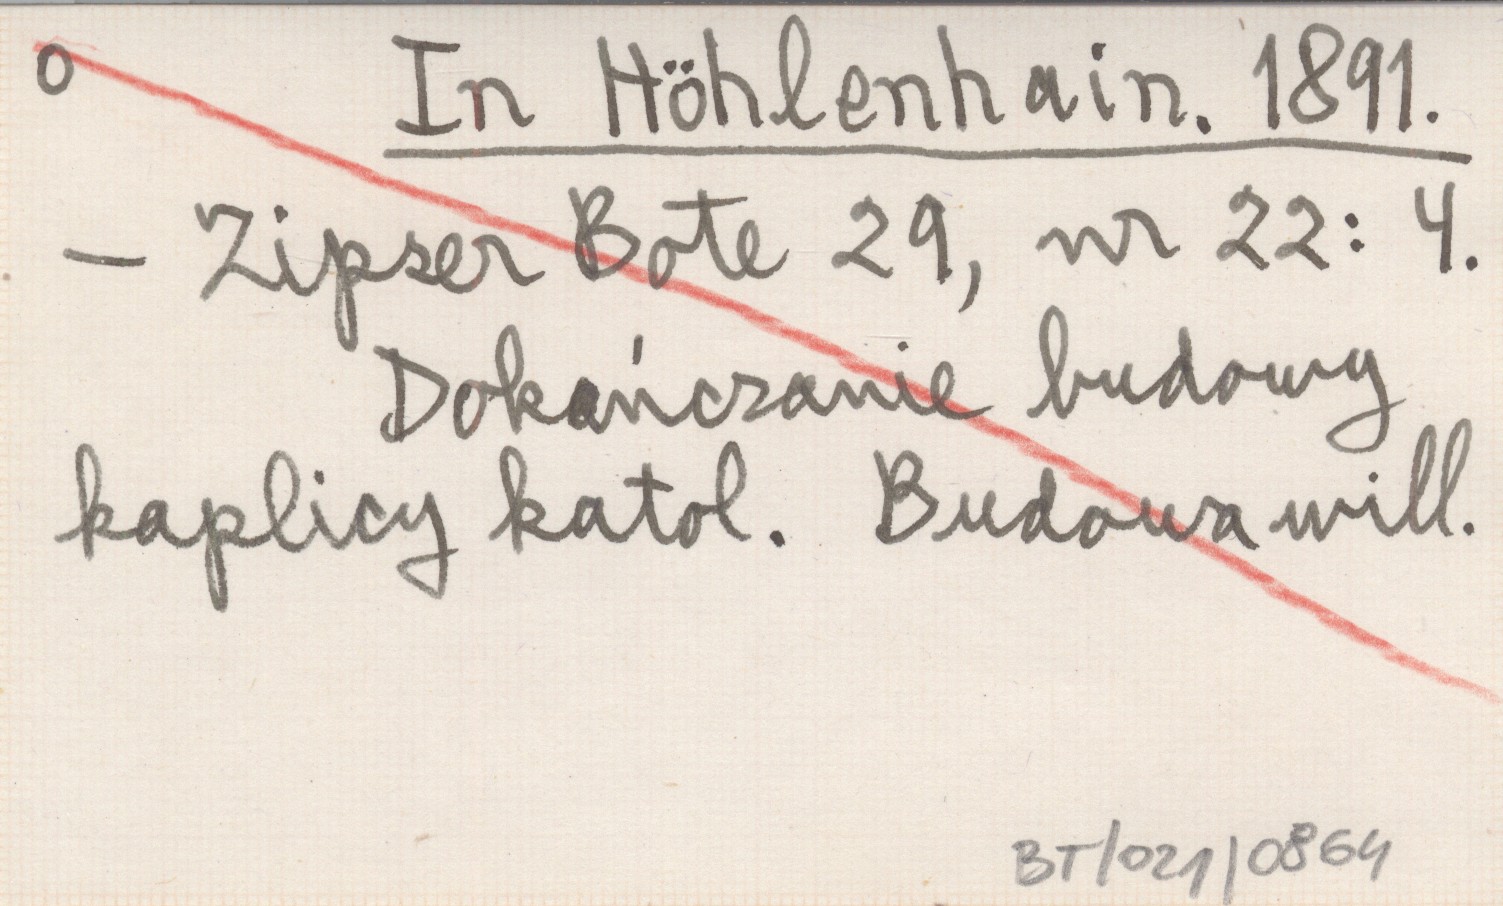 o In Höhlenhain. 1891.
– Zipser Bote 29, nr 22: 4.
Dokańczanie budowy
kaplicy katol. Budowa will.
BT/021/0864